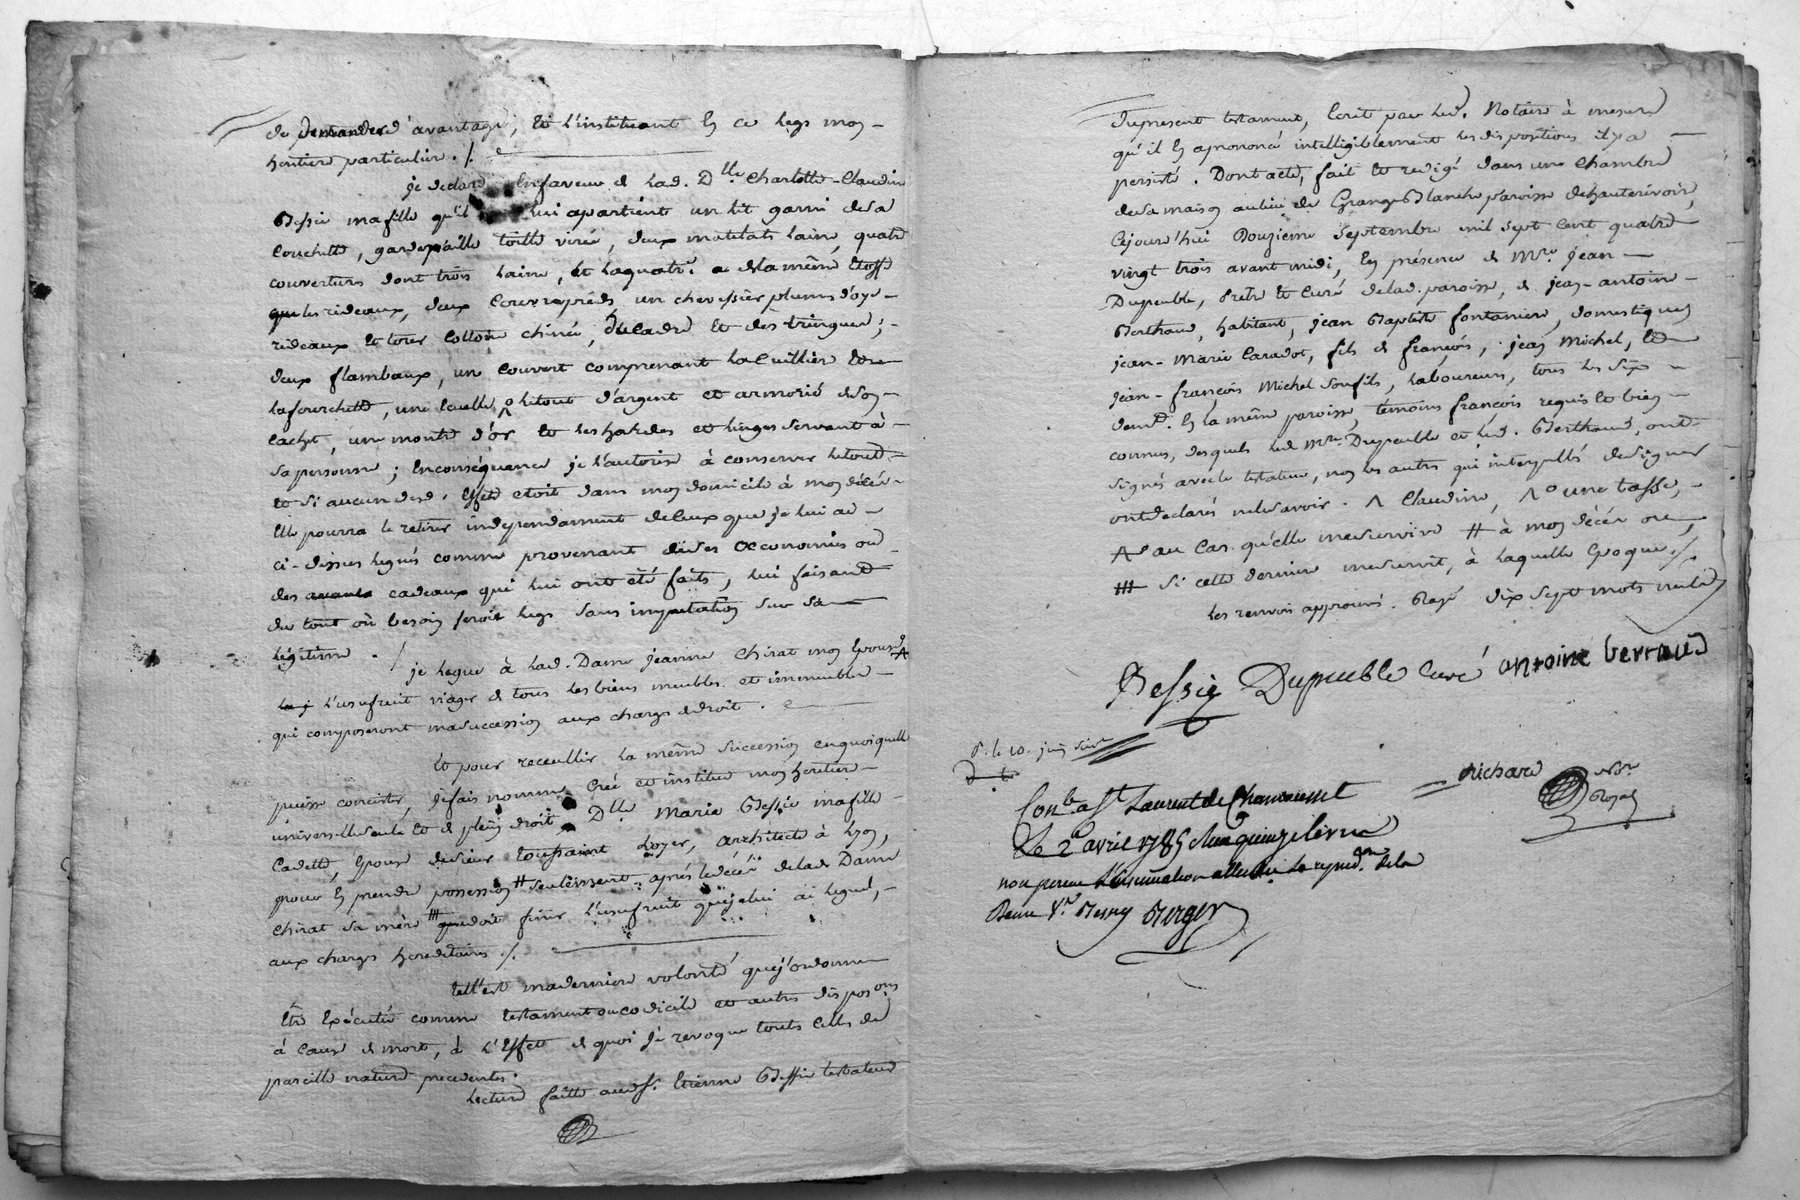 de demander d'avantage, et l'instituant En ce legs mon
heritiere particuliere ./.
je declare En faveur de lad. Dlle Charlotte-Claudine
Bessie ma fille qu'il lui apartient un lit garni de sa
Couchette, gardepaille toille virée, deux matelats laine, quatre
couvertures dont trois laine, et la quatre. de la même Etoffe
que les rideaux, deux Couvrepieds, un chevessier plume d'oye
rideaux et tours Cottone chinée, du Cadre et des tringues;
deux flambeaux, un Couvert comprenant la Cuillier et
la fourchette, une Ecuelle, le tout d'argent et armorié de son
Cachet, une montre d'or et les hardes et linges servant à
sa personne; En conséquence je l'autorise à conserver le tout
et si aucun desd. Effets etoit dans mon domicile à mon décés
Elle pourra le retirer independament de Ceux que je lui ai
ci-dessus legués comme provenant de ses Œconomies ou
des cadeaux qui lui ont été faits, lui faisant
du tout où besoin seroit legs sans imputation sur sa
légitime ./
je legue à lad. Dame jeanne Chirat mon Epouse
l'usufruit viager de tous les biens meubles et immeubles
qui composeront ma succession aux charges de droit.
Et pour receullir la même succession en quoi quelle
puisse consister, je fais nomme, Crée et institue mon heritiere
universelle seule et de plein droit, Dlle Marie Bessie ma fille
Cadette, Epouse du sieur toussaint Loyer, architecte à Lyon,
pour En prendre possession # seulement après le décés de lad. Dame
Chirat sa mère ⧻ que doit finir l'usufruit que je lui ai legué,
aux charges hereditaires ./.
tell'est ma derniere volonté que j'ordonne
Etre Exécutée comme testament ou codicile et autres disposons
à Cause de mort, à l'Effet de quoi je revoque toutes celles de
pareille nature precedentes.
Lecture faitte aud. sr. Etienne Bessie testateur
Du present testament, Ecrit par led. Notaire à mesure
qu'il En a prononcé intelligiblement les dispositions il y a
persisté. Dont acte, fait et redigé dans une Chambre
de sa maison au lieu de Grange Blanche paroisse de hauterivoire,
Cejourd'hui Douzieme Septembre mil sept Cent quatre
vingt trois avant midi, En présence de Mre. Jean
Dupeuble, Prêtre et Curé de lad. paroisse, de Jean-antoine
Berthaud, habitant, jean Baptiste fontaniere, domestique
jean-Marie Caradot, fils de françois, jean Michel, et
jean-françois Michel son fils, laboureurs, tous les Six
demt. En la même paroisse, témoins françois requis et bien
connus, desquels led. Mre. Dupeuble et led. Berthaud, ont
signés avec le testateur, non les autres qui interpellés de Signer
ont declaré ne le savoir. Λ Claudine, Λo une tasse,
Λ au Cas qu'elle me survive # à mon décés ou,
⧻ Si cette derniere me survit, à laquelle Epoque ./.
les renvois approuvés. Rayé dix sept mots nuls
Bessie Dupeuble Curé antoine bertaud
Richard Nore Royal
Conlé a St Laurent de Chamousset
Le 2 avril 1785 Reçu quinze livres
non perçu L'insinuation
Berger